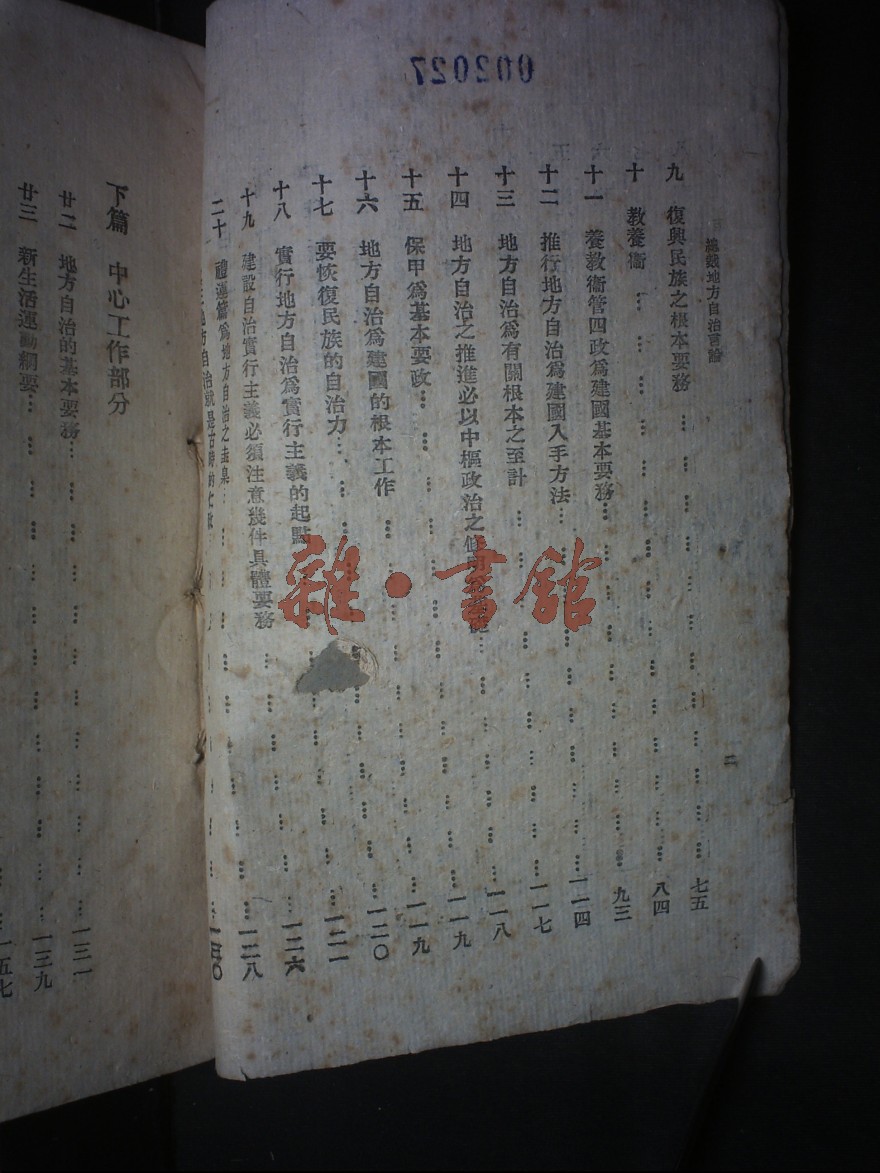 002027
總裁地方自治言論
九 復興民族之根本要務 七五
十 教養衞 八四
十一 養教衞管四政爲建國基本要務 九三
十二 推行地方自治爲建國入手方法 一一四
十三 地方自治爲有關根本之至計 一一七
十四 地方自治之推進必以中樞政治之 一一八
十五 保甲爲基本要政 一一九
十六 地方自治爲建國的根本工作 一一九
十七 要恢復民族的自治力 一二〇
十八 實行地方自治爲實行主義的起點 一二一
十九 建設自治實行主義必須注意幾件具體要務 一二六
二十 禮運篇爲地方自治之圭臬 一二八
地方自治就是古時的仁政 一三〇
二
下篇 中心工作部分
廿二 地方自治的基本要務 一三一
廿三 新生活運動綱要 一三九
一五七
雜·書館